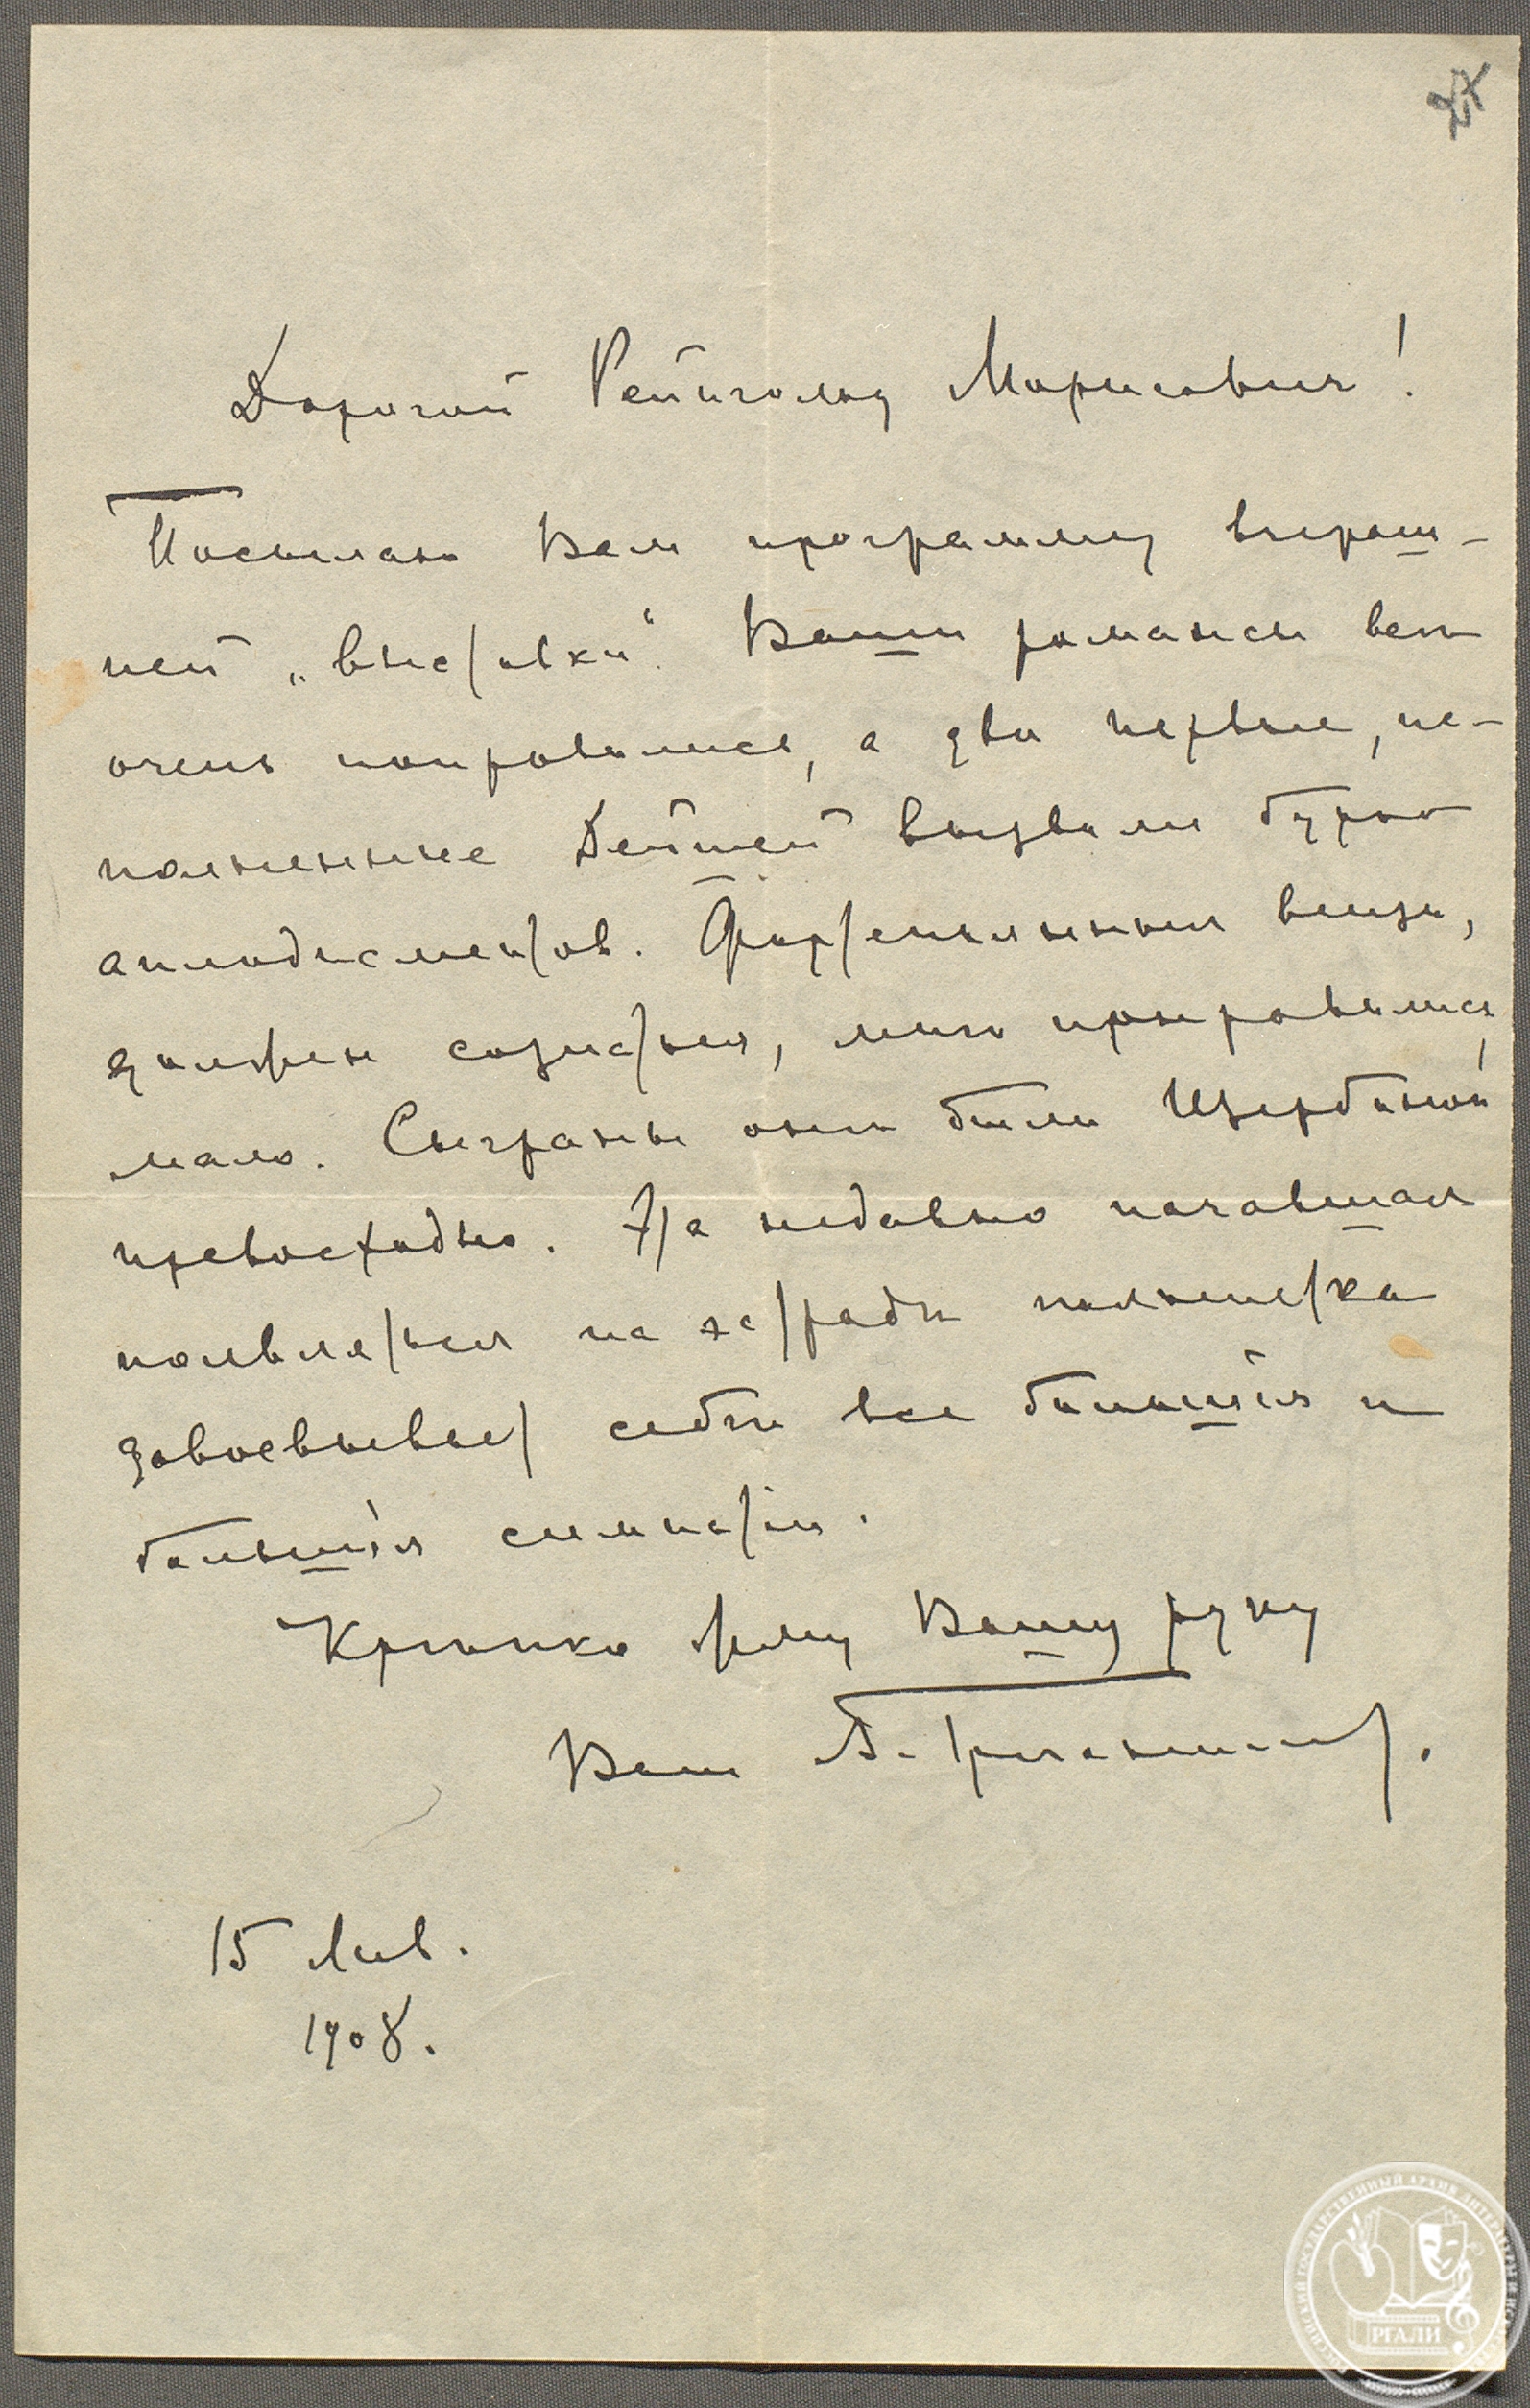 Дорогой Рейнгольд Морисович!
Посылаю Вам программу вчераш-
ней „выставки“. Ваши романсы всѣм
очень понравились, а два первые, ис-
полненные Дейшей вызвали бурю
аплодисментов. Фортепьянныя вещи,
должен сознаться, мнѣ понравились
мало. Сыграны они были Щербиной
превосходно. Эта недавно начавшая
появляться на эстрадѣ пьянистка
завоевывает себѣ все большія и
большія симпатіи.
Крѣпко жму Вашу руку
Ваш
15 Янв.
1908.
РГАЛИ